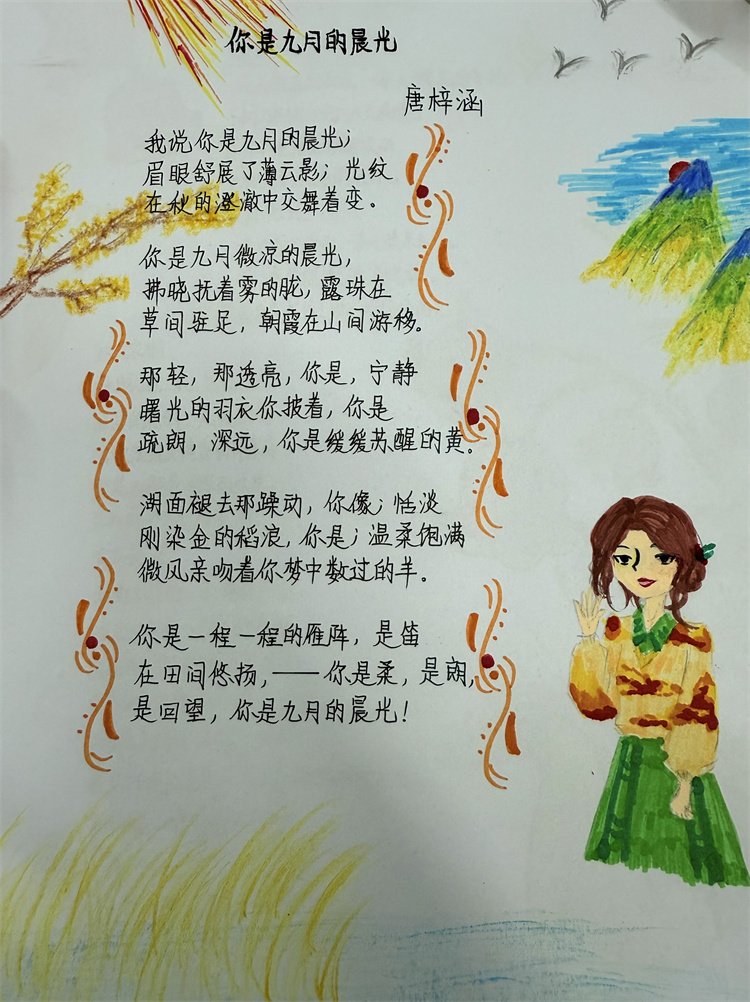 你是九月的晨光
唐梓涵
我说你是九月的晨光；
眉眼舒展了薄云影；光纹
在秋的澄澈中交舞着变。
你是九月微凉的晨光，
拂晓抚着雾的胧，露珠在
草间驻足，朝霞在山间游移。
那轻，那透亮，你是，宁静
曙光的羽衣你披着，你是
疏朗，深远，你是缓缓苏醒的黄。
湖面褪去那躁动，你像；恬淡
刚染金的稻浪，你是；温柔饱满
微风亲吻着你梦中数过的羊。
你是一程一程的雁阵，是笛
在田间悠扬，——你是柔，是朗，
是回望，你是九月的晨光！